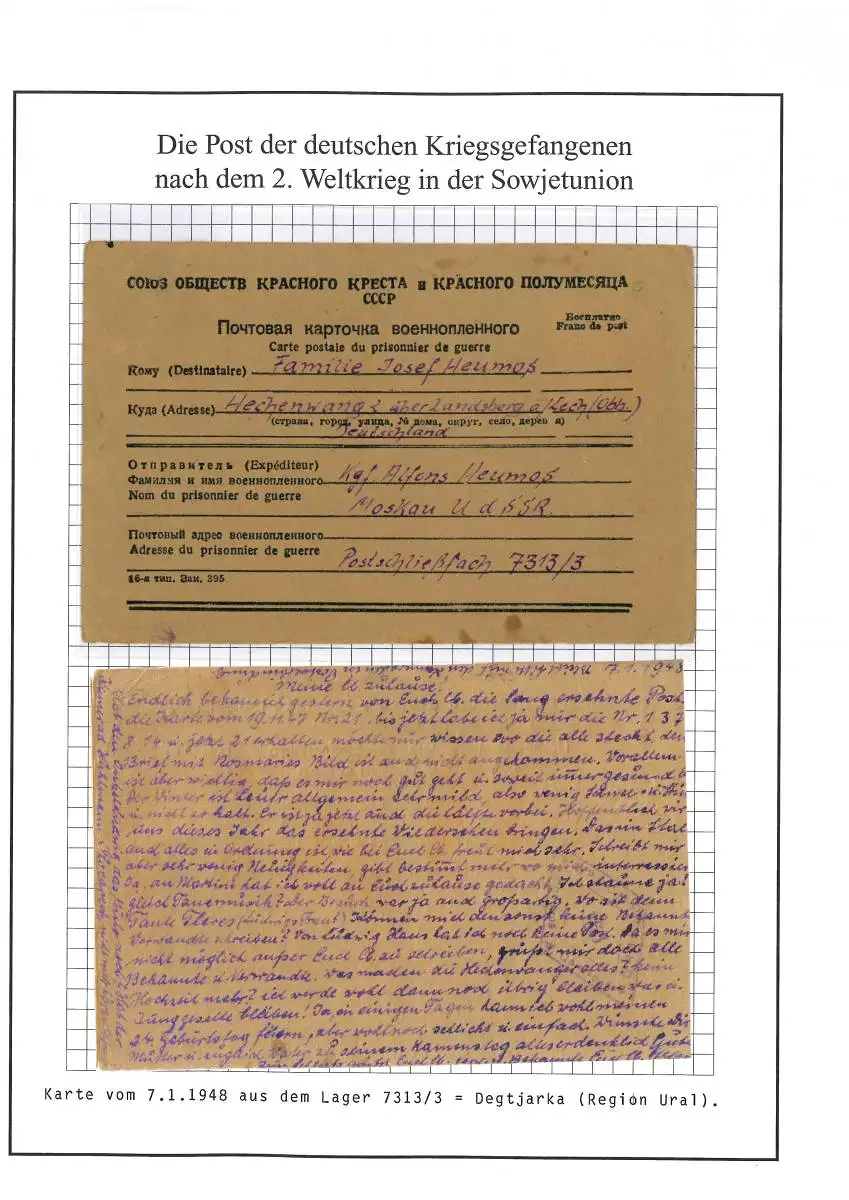 Die Post der deutschen Kriegsgefangenen
nach dem 2. Weltkrieg in der Sowjetunion
СОЮЗ ОБЩЕСТВ КРАСНОГО КРЕСТА и КРАСНОГО ПОЛУМЕСЯЦА
СССР
Почтовая карточка военнопленного
Бесплатно
Franc de port
Carte postale du prisonnier de guerre
Кому (Destinataire) Familie Josef Heumos
Куда (Adresse) Hechenwang 2 über Landsberg a/Lech (Obb.)
(страна, город, улица, № дома, округ, село, деревня)
Deutschland
Отправитель (Expéditeur)
Фамилия и имя военнопленного Kgf. Alfons Heumos
Nom du prisonnier de guerre
Moskau UdSSR.
Почтовый адрес военнопленного
Adresse du prisonnier de guerre
Postschließfach 7313/3
16-я тип. Зак. 395
7.1.1948
Meine lb. zuhause.
Endlich bekam ich gestern von Euch lb. die lang ersehnte Post
die Karte vom 19.11.47 Nr. 21. bis jetzt habe ich ja nur die Nr. 1 3 7
8 14 u. jetzt 21 erhalten möchte nur wissen wo die alle steckt, der
Brief mit Rosmaries Bild ist auch nicht angekommen. Vorallem
ist aber wichtig, daß es mir noch gut geht u. soweit immer gesund b
Der Winter ist heuer allgemein sehr mild, also wenig Schnee
u. nicht so kalt. Er ist ja jetzt auch die Hälfte vorbei. Hoffentlich wir
uns dieses Jahr das ersehnte Wiedersehen bringen. Das im Stal
und alles in Ordnung ist wie bei Euch lb. freut mich sehr. Schreibt mir
aber sehr wenig Neuigkeiten, gibt bestimmt mehr wo mich interessier
Ja, an Martini hat ich wohl an Euch zuhause gedacht, Ich staune ja!
gleich Tanzmusik? Der Besuch war ja auch großartig. Wo ist denn
Tante Theres (Ludwigs Frau!) Können mir den sonst keine Bekannt
Verwandte schreiben? Von Ludwig Haus hab ich noch keine Post. Da es mir
nicht möglich außer Euch lb. zu schreiben, grüßt mir doch alle
Bekannte u. Verwandte. was machen die Hechenwanger alles? kein
Hochzeit mehr? ich werde wohl dannoch übrig bleiben was u.
Junggeselle bleiben! Ja, in einigen Tagen kann ich wohl meinen
24. Geburtstag feiern, aber wohl noch schlicht u. einfach. Wünsche Dir
Mutter u. zugleich Vater zu seinem Namenstag alles erdenklich Gute
Karte vom 7.1.1948 aus dem Lager 7313/3 = Degtjarka (Region Ural).